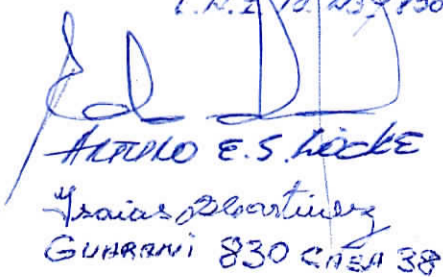 ARTURO E.S. LOCKE
Isaias Martinez
GUARANI 830 CASA 38